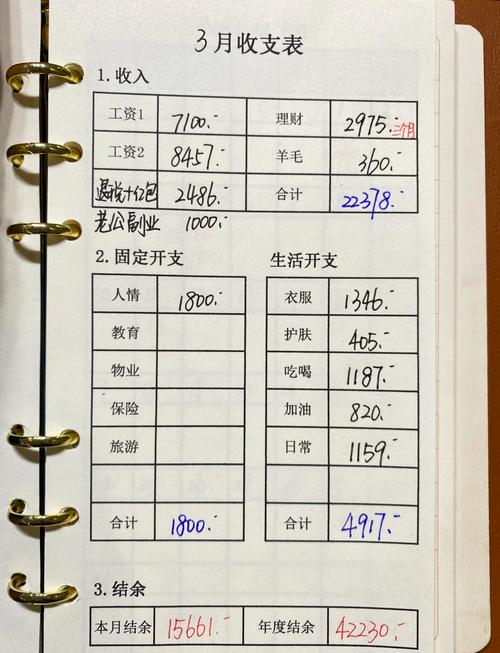 3月收支表
1. 收入
工资1 7100.- 理财 2975.- 三个月
工资2 8457.- 羊毛 360.-
退税+红包 2486.- 合计 22378.-
老公副业 1000.-
2. 固定开支 生活开支
人情 1800.- 衣服 1346.-
教育 护肤 405.-
物业 吃喝 1187.-
保险 加油 820.-
旅游 日常 1159.-
合计 1800.- 合计 4917.-
3. 结余
本月结余 15661.- 年度结余 42230.-